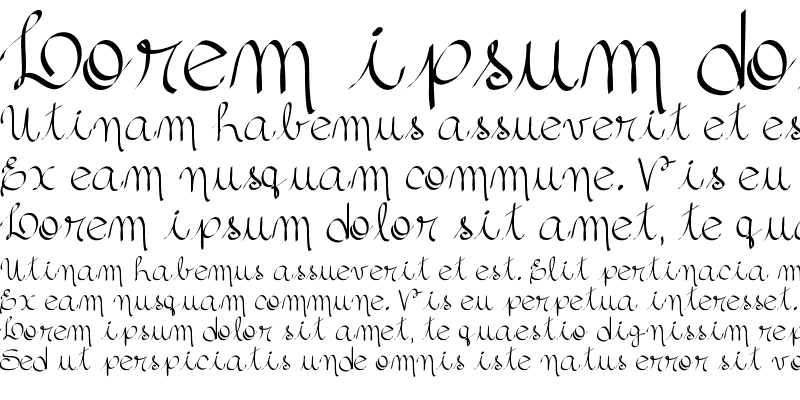 Lorem ipsum do
Utinam habemus assueverit et es
Ex eam nusquam commune. Vis eu
Lorem ipsum dolor sit amet, te qua
Utinam habemus assueverit et est. Elit pertinacia m
Ex eam nusquam commune. Vis eu perpetua interesset.
Lorem ipsum dolor sit amet, te quaestio dignissim rep
Sed ut perspiciatis unde omnis iste natus error sit vo